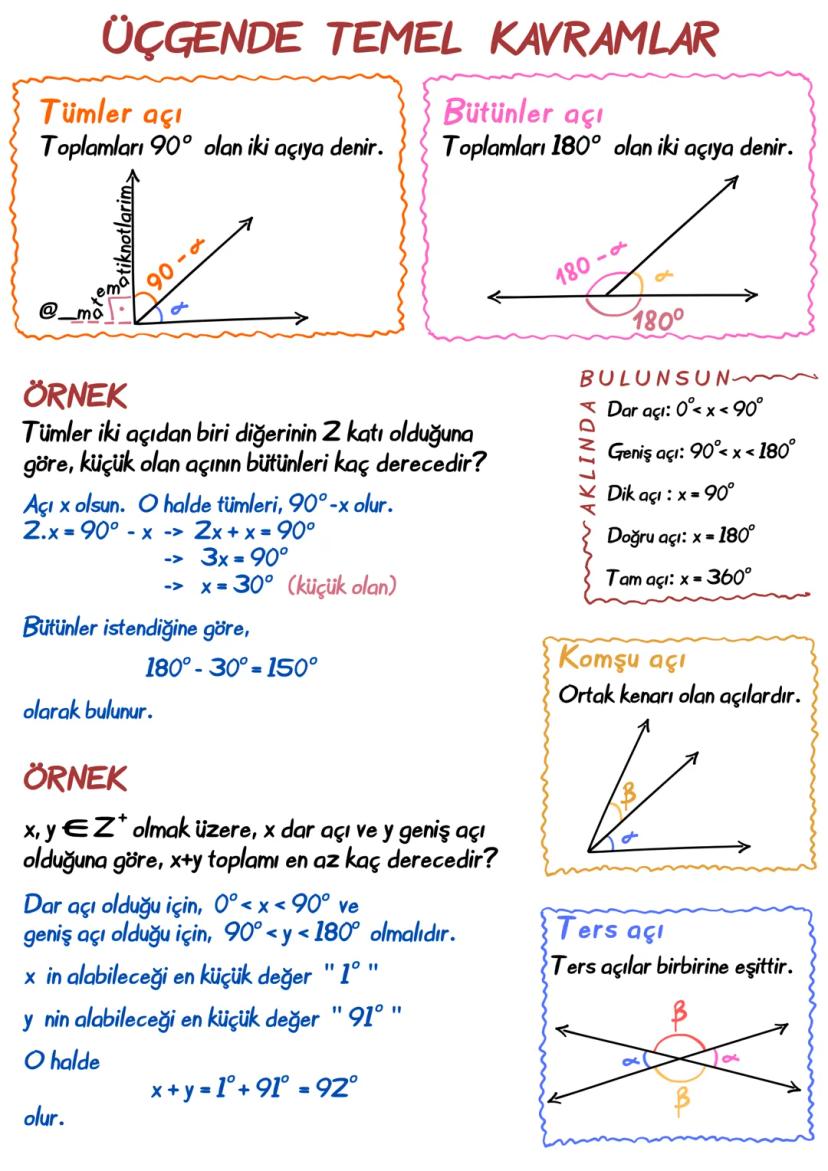 ÜÇGENDE TEMEL KAVRAMLAR
Tümler açı
Toplamları 90° olan iki açıya denir.
@__matematiknotlarim
90 - α
α
Bütünler açı
Toplamları 180° olan iki açıya denir.
180 - α
α
180°
ÖRNEK
Tümler iki açıdan biri diğerinin 2 katı olduğuna
göre, küçük olan açının bütünleri kaç derecedir?
Açı x olsun. O halde tümleri, 90° -x olur.
2.x = 90° - x -> 2x + x = 90°
-> 3x = 90°
-> x = 30° (küçük olan)
Bütünler istendiğine göre,
180° - 30° = 150°
olarak bulunur.
AKLINDA BULUNSUN
Dar açı: 0°< x < 90°
Geniş açı: 90°< x < 180°
Dik açı : x = 90°
Doğru açı: x = 180°
Tam açı: x = 360°
Komşu açı
Ortak kenarı olan açılardır.
β
α
ÖRNEK
x, y ∈ Z⁺ olmak üzere, x dar açı ve y geniş açı
olduğuna göre, x+y toplamı en az kaç derecedir?
Dar açı olduğu için, 0° < x < 90° ve
geniş açı olduğu için, 90° < y < 180° olmalıdır.
x in alabileceği en küçük değer " 1° "
y nin alabileceği en küçük değer " 91° "
O halde
x + y = 1° + 91° = 92°
olur.
Ters açı
Ters açılar birbirine eşittir.
β
α
α
β